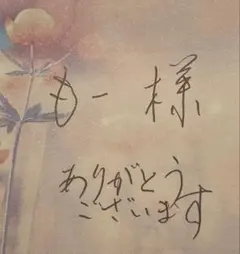 もー様
ありがとう
ございます